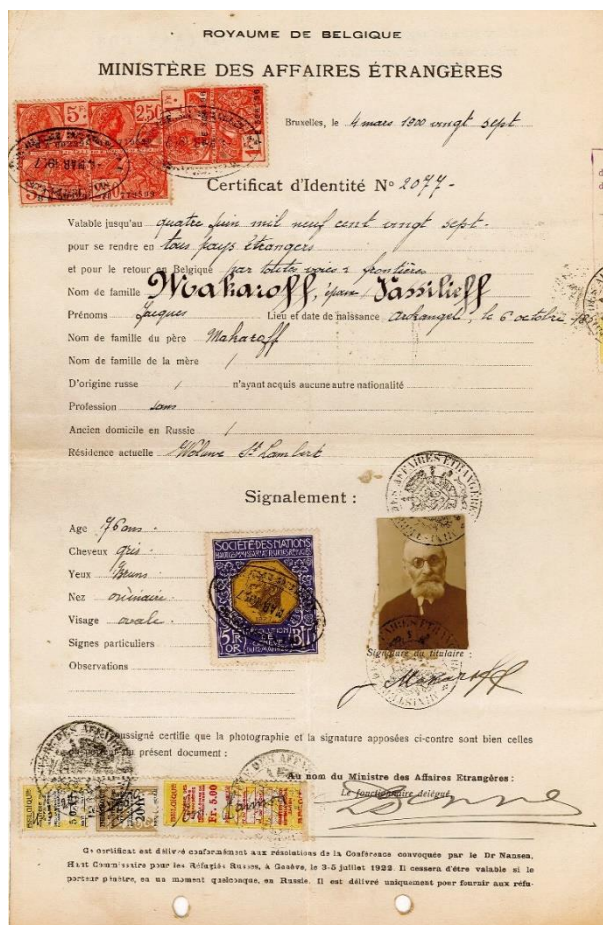 ROYAUME DE BELGIQUE
MINISTÈRE DES AFFAIRES ÉTRANGÈRES
Bruxelles, le 4 mars 1900 vingt sept
Certificat d'Identité Nº 2077-
Valable jusqu'au quatre juin mil neuf cent vingt sept.
pour se rendre en tous pays étrangers
et pour le retour en Belgique par toutes voies & frontières
Nom de famille Makaroff, époux Vassilieff
Prénoms Jacques Lieu et date de naissance Arkangel, le 6 octobre
Nom de famille du père Makaroff
Nom de famille de la mère /
D'origine russe / n'ayant acquis aucune autre nationalité
Profession sans
Ancien domicile en Russie /
Résidence actuelle Woluwe St Lambert
Signalement :
Age 76 ans.
Cheveux gris.
Yeux Bruns
Nez ordinaire
Visage ovale.
Signes particuliers
Observations
SOCIÉTÉ DES NATIONS
5 FR OR
BIT
Signature du titulaire :
Makaroff
soussigné certifie que la photographie et la signature apposées ci-contre sont bien celles
du présent document :
Au nom du Ministre des Affaires Etrangères :
Le fonctionnaire délégué,
BELGIQUE
Fr. 5.00
Ce certificat est délivré conformément aux résolutions de la Conférence convoquée par le Dr Nansen,
Haut Commissaire pour les Réfugiés Russes, à Genève, le 3-5 juillet 1922. Il cessera d'être valable si le
porteur pénètre, en un moment quelconque, en Russie. Il est délivré uniquement pour fournir aux réfu-